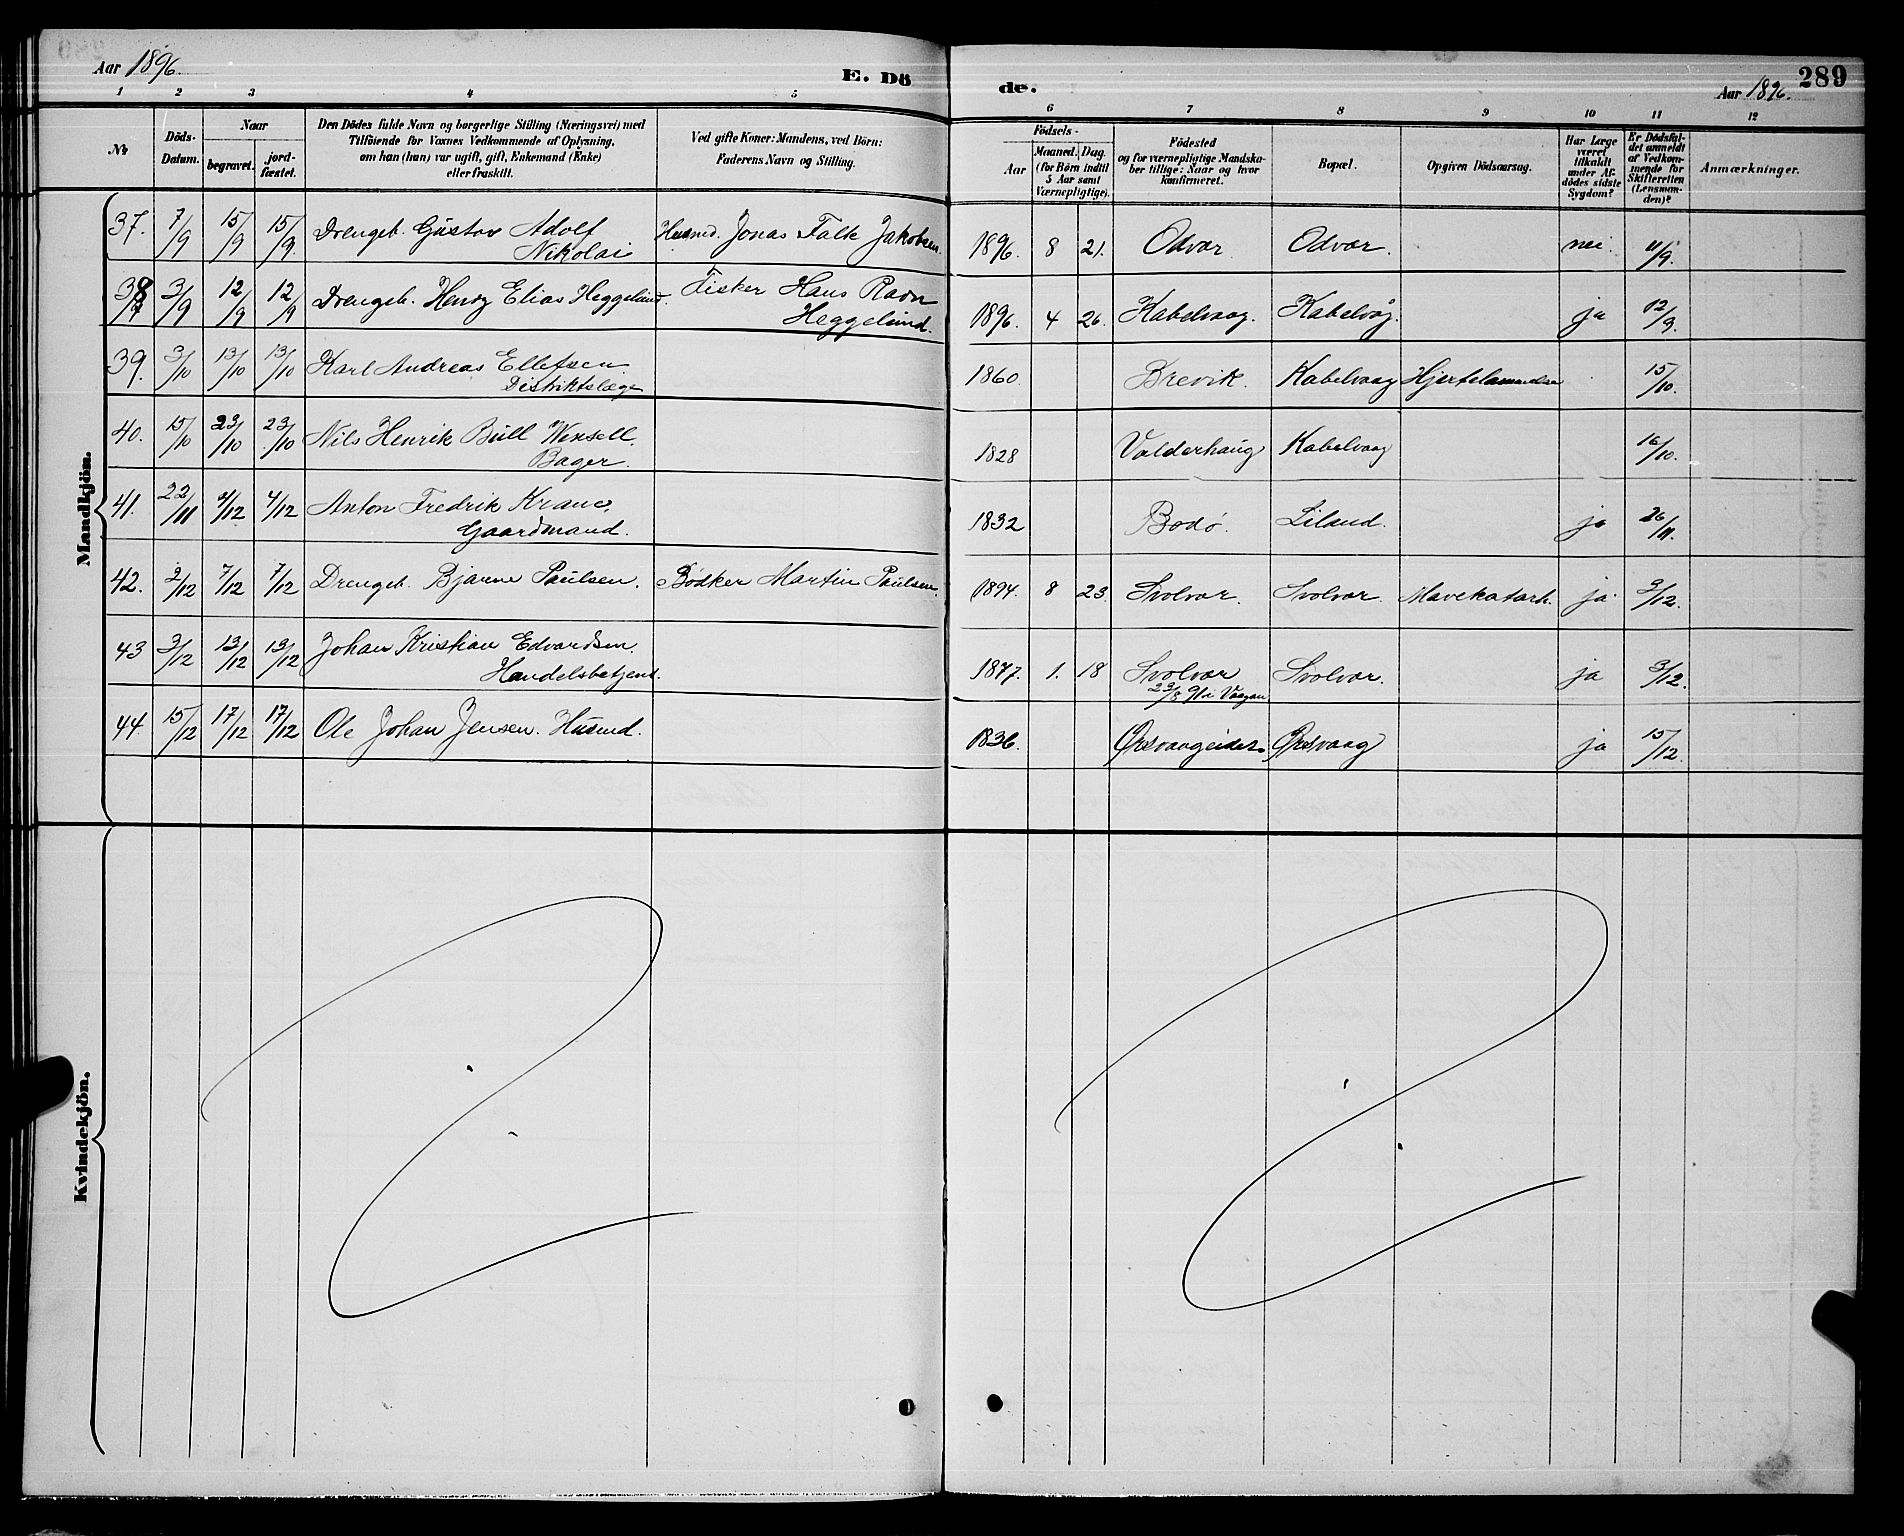 Aar 1896.
E. Dö
1 2 3 4 5
No
Döds-Datum.
Naar
begravet.
jord-fæstet.
Den Dödes fulde Navn og borgerlige Stilling (Næringsvei) med
Tilföiende for Voxnes Vedkommende af Oplysning,
om han (hun) var ugift, gift, Enkemand (Enke)
eller fraskilt.
Ved gifte Koner: Mandens, ved Börn:
Faderens Navn og Stilling.
Mandkjön.
37. 7/9 15/9 15/9. Drengeb. Gustav Adolf Husmd. Jonas Falk Jakobsen.
Nikolai
38 3/9 12/9 12/9 Drengeb. Henry Elias Heggelund. Fisker Hans Ravn
Heggelund.
39. 3/10 13/10 13/10 Karl Andreas Ellefsen
Distriktslæge
40. 15/10 23/10 23/10 Nils Henrik Bull Wensell.
Bager.
41. 22/11 4/12 4/12 Anton Fredrik Krane,
Gaardmand.
42. 2/12 7/12 7/12 Drengeb. Bjarne Paulsen. Bödker Martin Paulsen.
43 3/12 13/12 13/12 Johan Kristian Edvardsen.
Handelsbetjent.
44. 15/12 17/12 17/12 Ole Johan Jensen. Husmd.
Kvindekjön.
de.
289
Aar 1896.
6 7 8 9 10 11 12
Födsels-
Aar
Maaned. Dag.
(for Börn indtil
5 Aar samt
Værnepligtige).
Födested
og for værnepligtige Mandska-
ber tillige: Naar og hvor
konfirmeret.
Bopæl.
Opgiven Dödsaarsag.
Har Læge
været
tilkaldt
under Af-
dödes sidste
Sygdom?
Er Dödsfal-
det anmeldt
af Vedkom-
mende for
Skifteretten
(Lensman-
den)?
Anmærkninger.
1896. 8 21. Odvær Odvær. nei. 11/9.
1896. 4 26. Kabelvaag. Kabelvåg. ja 12/9.
1860. Brevik. Kabelvaag Hjertelammelse 15/10.
1828 Valderhaug Kabelvaag 16/10.
1832 Bodø. Liland. ja 26/11.
1894. 8 23. Svolvær. Svolvær. Mavekatarh. ja 3/12.
1877. 1. 18 Svolvær Svolvær. ja 3/12.
i Vaagan
1836. Ørsvaageidet Ørsvaag ja 15/12.